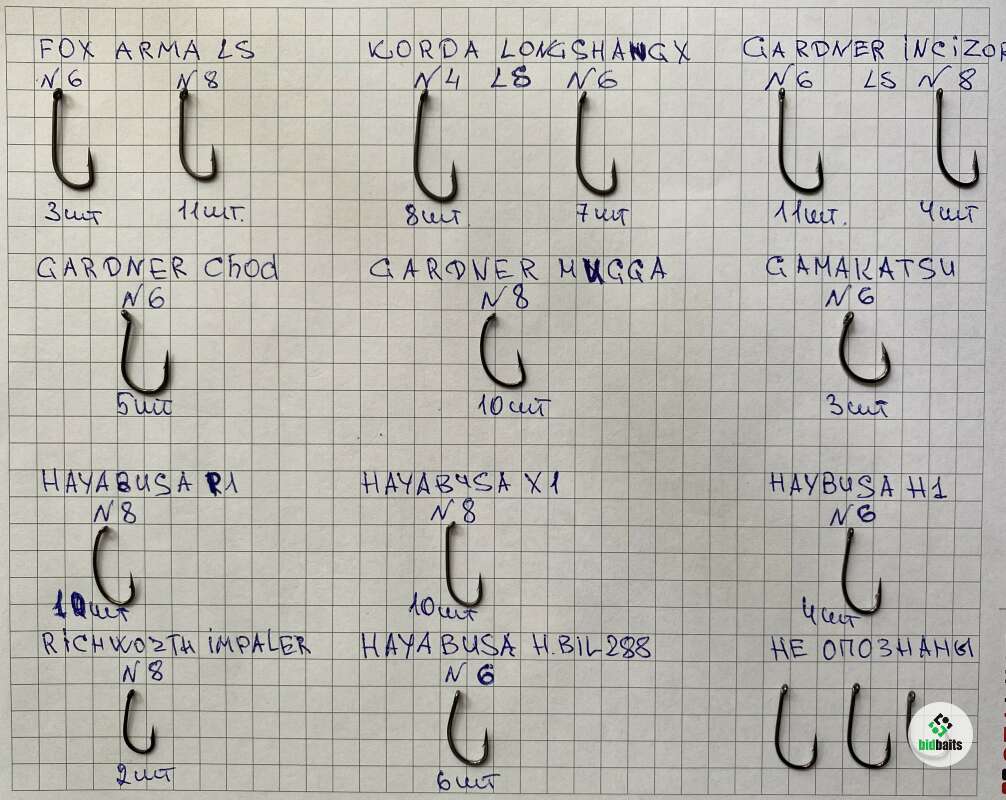 FOX ARMA LS KORDA LONGSHANGX GARDNER iNCiZOR
N6 N8 N4 LS N6 N6 LS N8
3шт 11шт. 8шт 7шт 11шт. 4шт
GARDNER Chod GARDNER MUGGA GAMAKATSU
N6 N8 N6
5шт 10шт 3шт
HAYABUSA R1 HAYABUSA X1 HAYBUSA H1
N8 N8 N6
10шт 10шт 4шт
RiCHWORTH iMPALER HAYABUSA H.BIL288 НЕ ОПОЗНАНЫ
N8 N6
2шт 6шт
bidbaits